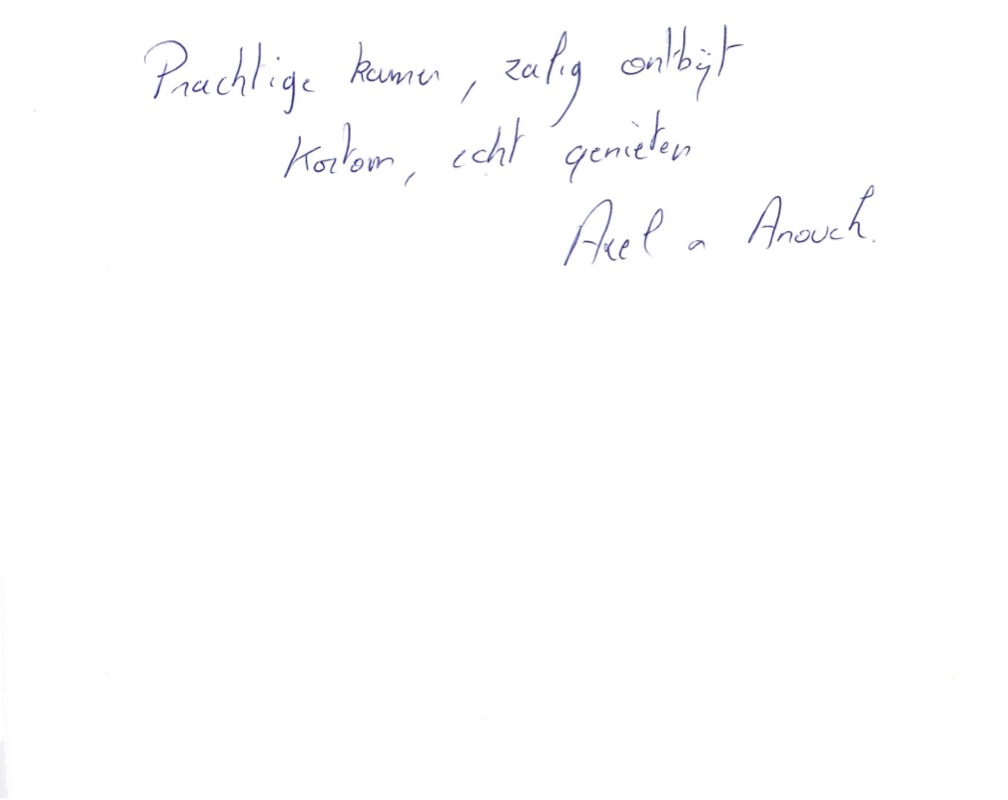 Prachtige kamer, zalig ontbijt
Kortom, echt genieten
Axel & Anouch.